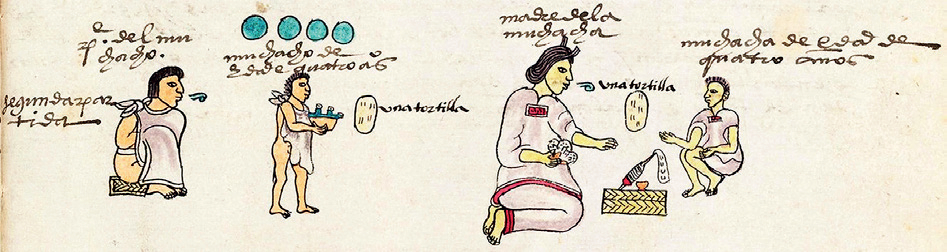 pe. del mu
chacho.
segunda par
tida
muchacho de
hedad e quatro aºs
una tortilla
madre de la
muchacha
una tortilla
muchacha de edad de
quatro años